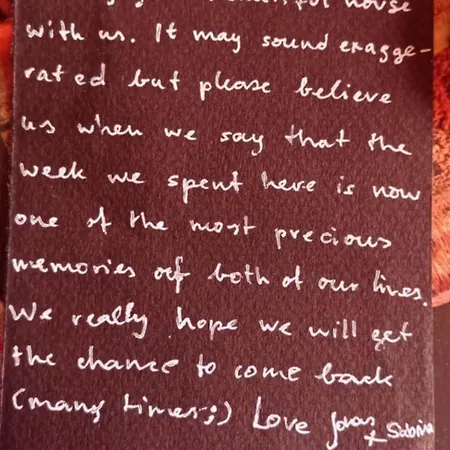 house
with us. It may sound exagge-
rated but please believe
us when we say that the
week we spent here is now
one of the most precious
memories of both of our lives.
We really hope we will get
the chance to come back
(many times;) Love Jonas
+ Sabrina